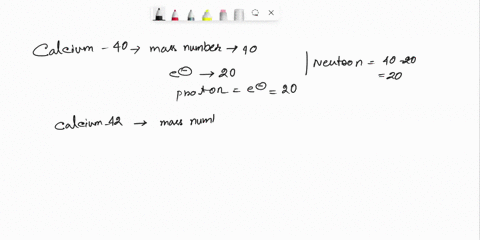 Calcium - 40 → mass number → 40
e⊖ → 20
proton = e⊖ = 20
Neutron = 40-20
= 20
Calcium-42 → mass num